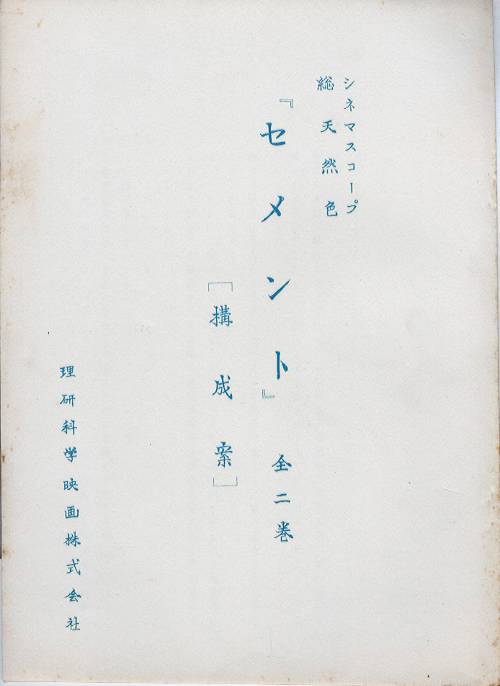 シネマスコープ
総天然色
『セメント』全二巻
[構成案]
理研科学映画株式会社